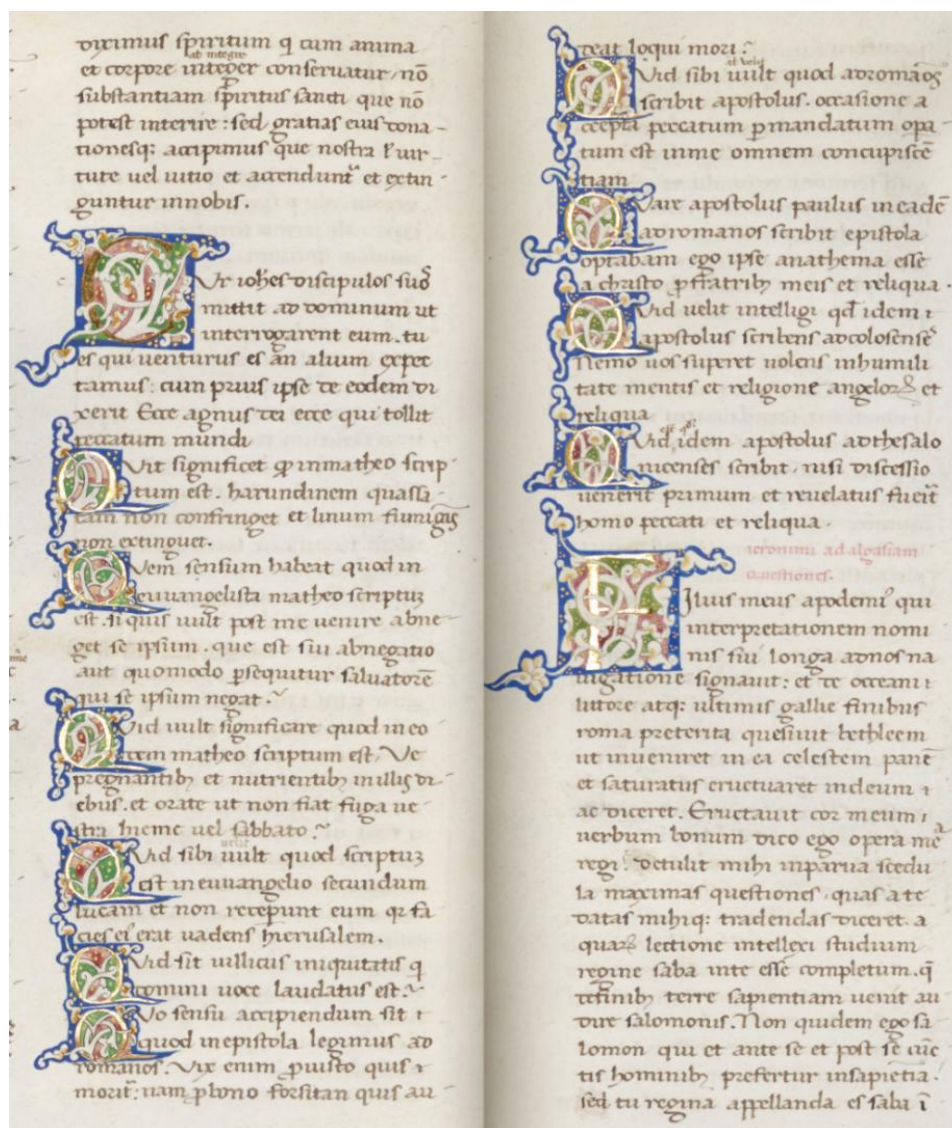 diximus spiritum q cum anima
ab integro
et corpore integer conservatur, nō
substantiam sp̄iritus sancti que nō
potest interire : sed gratias eius dona-
tionesq: accipimus que nostra l̓ vir-
tute uel uitio et accendunt᷑ et extin-
guntur innobis.
Cur ioh̄es discipulos suos
mittit ad dominum ut
interrogarent eum. tu
es qui venturus es an alium expec
tamus: cum prius ipse de eodem di
xerit Ecce agnus dei ecce qui tollit
peccatum mundi
Quit significet qp inmatheo scrip-
tum est. harundinem quassa
tam non confringet et linum fumigās
non extinguet.
Quem sensum habeat quod in
euuangelista matheo scriptuz
est. si quis uult post me uenire abne-
get se ipsum. que est sui abnegatio
aut quomodo psequitur saluatorē
qui se ipsum negat.
Quid uult significare quod in eo
dem matheo scriptum est, Ve
pregnantib; et nutrientib; inillis di-
ebus. et orate ut non fiat fuga ue-
stra hieme uel sabbato.
velit
Quid sibi uult quod scriptuz
est in euuangelio secundum
lucam et non receperunt eum qr fa
cies ei᷒ erat uadens hierusalem.
Quid sit uillicus iniquitatis q
domini uoce laudatus est.
Quo sensu accipiendum sit
quod inepistola legimus ad
romanos. Vix enim p̄ iusto quis
morit᷑: nam p̄ bono forsitan quis au
deat loqui mori :
al velit
Quid sibi uult quod adromanos
scribit apostolus. occasione a
ccepta peccatum pmandatum opa
tum est inme omnem concupiscē
tiam
Quare apostolus paulus in eadē
adromanos scribit epistola
optabam ego ipse anathema esse
a christo p̄ fratrib; meis et reliqua.
Quid uelit intelligi qd̄ idem
apostolus scribens adcolosensē
Nemo uos superet volens inhumili
tate mentis et religione angeloꝝ et
reliqua
est qd
Quid idem apostolus adthesalo
nicenses scribit. nisi discessio
uenerit primum et reuelatus fuerit
homo peccati et reliqua.
ieronimi ad algasiam
questiones.
Filius meus apodemi᷒ qui
interpretationem nomi
nis sui longa adnos na
uigatione signauit: et de occeani
littore atq: ultimis gallie finibus
roma preterita quesiuit bethleem
ut inueniret in ea celestem panē
et saturatus eructuaret indeum
ac diceret. Eructauit cor meum
uerbum bonum dico ego opera mē̄a
regi. Detulit mihi inparua scedu
la maximas questiones. quas a te
datas mihiq: tradendas diceret. a
quaꝝ lectione intellexi studium
regine saba inte esse completum. q̄
definib; terre sapientiam uenit au
dire salomonis. Non quidem ego sa
lomon qui et ante se et post se cūc
tis hominib; prefertur insapiētia.
sed tu regina appellanda es saba ī